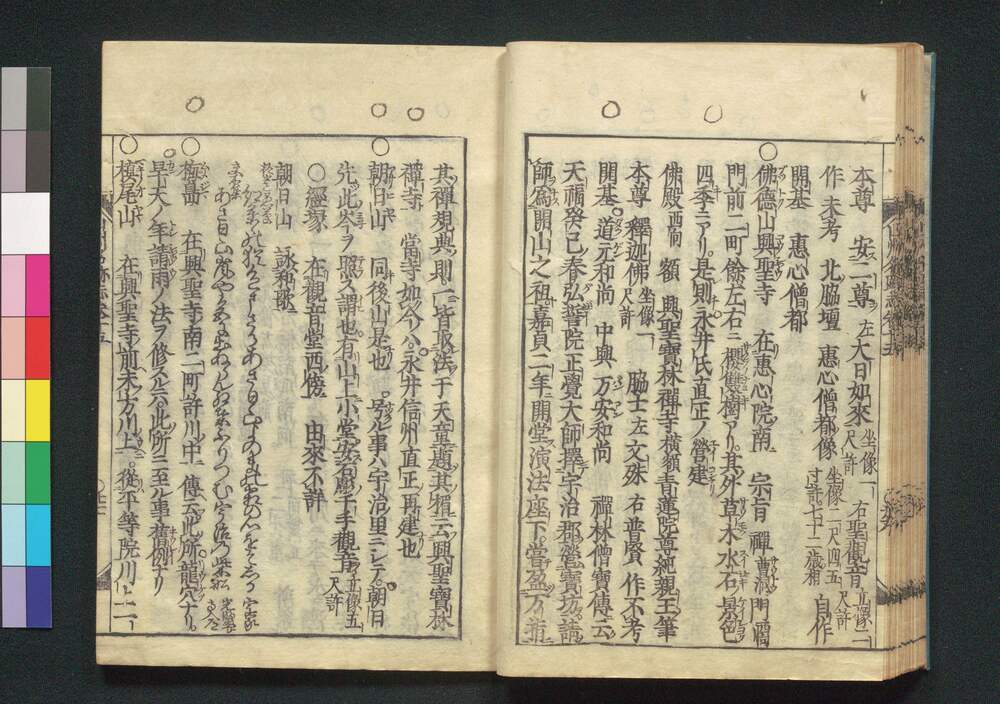 本尊 安二尊 左大日如來 坐像一尺許 右聖觀音 立像二尺許
作未考 北脇壇 惠心僧都像 坐像二尺四五寸許七十二歳相 自作
開基 惠心僧都
○佛德山興聖寺 在惠心院南 宗旨 禪曹洞
門前二町餘左右ニ櫻雙樹アリ。其外草木水石景色
四季ニアリ。是則永井氏直正ノ營建
佛殿西向 額 興聖寶林禪寺 橫額青蓮院尊純親王筆
本尊 釋迦佛 坐像尺許 脇士 左文殊 右普賢 作不考
開基。道元和尚 中興 万安和尚 禪林僧寶傳云
天福癸巳春弘誓院正覺大師擇宇治郡營寶坊。請
師爲開山之祖。嘉貞二年開堂演法座下。嘗盈万指
其禪規典則一皆取法于天童題其楣云興聖寶林
禪寺 當寺如今ハ。永井信州直正再建也
○朝日山 同後山是也。号ル事ハ宇治里ニシテ。朝日
先此岑ヲ照ス謂也。有山上小堂安石彫千手觀音 立像五尺許
○經塚 在觀音堂西傍 由來不詳
朝日山 詠和歌
○槇嶋 在興聖寺南二町許川中 傳云此所龍穴ナリ。
早大ノ年請雨ノ法ヲ修スル六此所ニ至ル事舊例ナリ
○槇尾山 在興聖寺前未方川上。從平等院川上一